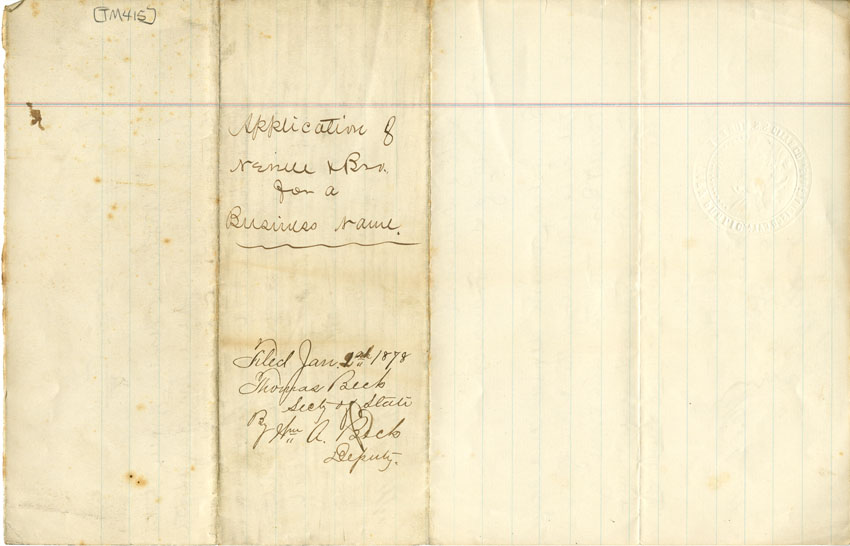 [TM415]
Application of
Neville & Bro.
for a
Business Name.
Filed Jan. 2nd 1878
Thomas Beck
Secty of State
By Wm A. Beck
Deputy.